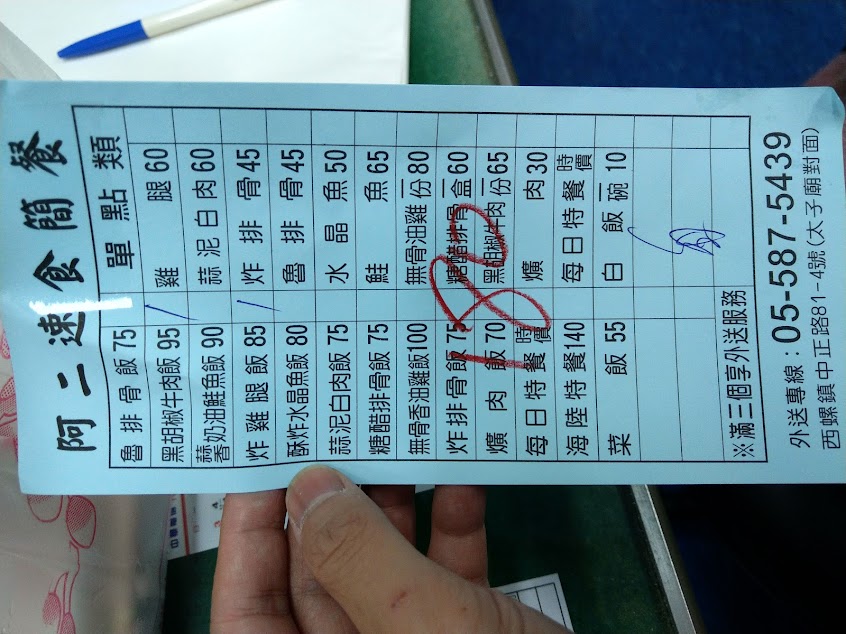 阿二速食簡餐
單點類
魯排骨飯 75
雞腿 60
黑胡椒牛肉飯 95
蒜泥白肉 60
蒜香奶油鮭魚飯 90
炸排骨 45
炸雞腿飯 85
魯排骨 45
酥炸水晶魚飯 80
水晶魚 50
蒜泥白肉飯 75
鮭魚 65
糖醋排骨飯 75
無骨油雞一份 80
無骨香油雞飯 100
糖醋排骨一盒 60
炸排骨飯 75
黑胡椒牛肉一份 65
爌肉飯 70
爌肉 30
每日特餐 時價
每日特餐 時價
海陸特餐 140
白飯一碗 10
菜飯 55
180
※滿三個享外送服務
外送專線：05-587-5439
西螺鎮中正路81-4號(太子廟對面)